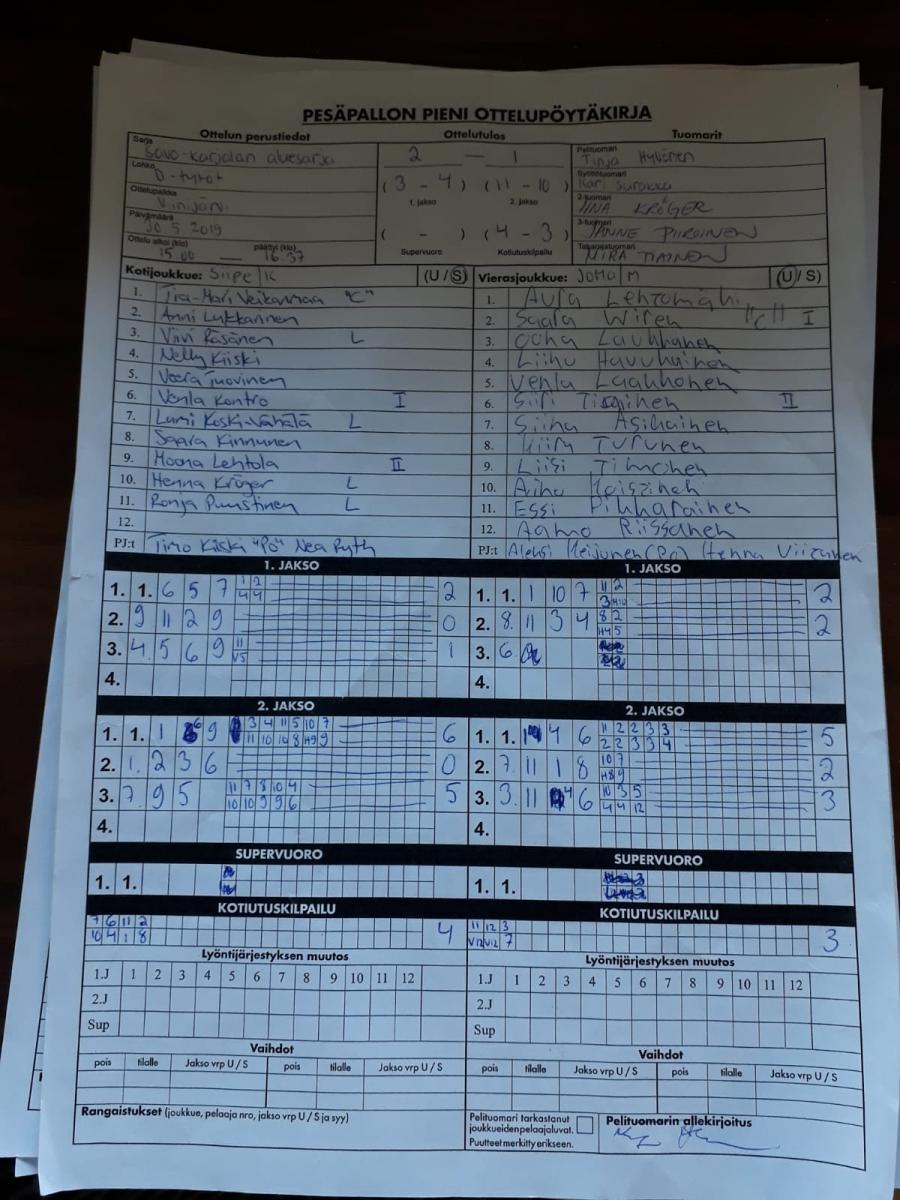 PESÄPALLON PIENI OTTELUPÖYTÄKIRJA
Ottelun perustiedot Ottelutulos Tuomarit
Sarja Savo-karjalan aluesarja 2 — 1 Pelituomari Tinja Hyvönen
Lohko D-tytöt (3 - 4) (11 - 10) Syöttötuomari Kari Surakka
Ottelupaikka Viinijärvi 1. jakso 2. jakso 2-tuomari IINA KRÖGER
Päivämäärä 30.5 2019 ( - ) (4 - 3) 3-tuomari JANNE PIIROINEN
Ottelu alkoi (klo) 15.00 — päättyi (klo) 16.37 Supervuoro Kotiutuskilpailu Takarajatuomari MIRA TIAINEN
Kotijoukkue: SiiPe/K (U/S) Vierasjoukkue: JoMa/M (U/S)
1. Tiia-Mari Veikanmaa "C" 1. Aura Lehtomäki
2. Anni Lukkarinen 2. Saara Wiren "C" I
3. Viivi Räsänen L 3. Oona Laukkanen
4. Nelly Kiiski 4. Liinu Havukainen
5. Veera Tuovinen 5. Venla Laakkonen
6. Venla Kontro I 6. Siiri Tiainen II
7. Lumi Koski-Vähälä L 7. Siina Asikainen
8. Saara Kinnunen 8. Turunen
9. Moona Lehtola II 9. Liisi Timonen
10. Henna Kröger L 10. Ainu
11. Ronja Puustinen L 11. Essi Pikkarainen
12. 12. Aamo Riissanen
PJ:t Timo Kiiski "Po" Nea Ryth PJ:t Aleksi Heijunen (Po) Henna Viitanen
1. JAKSO 1. JAKSO
1. 1. 6 5 7 1 2 2 1. 1. 1 10 7 11 2 2
4 4 3 H10
2. 9 11 2 9 0 2. 8. 11 3 4 8 2 2
H4 5
3. 4. 5 6 9 11 1 3. 6.
V5
4. 4.
2. JAKSO 2. JAKSO
1. 1. 1 6 9 3 4 11 5 10 7 6 1. 1. 4 6 11 2 2 3 3 5
11 10 10 8 H9 9 2 2 3 3 4
2. 1. 2 3 6 0 2. 7. 11 1 8 10 7 2
H8 9
3. 7. 9 5 11 7 8 10 4 5 3. 3. 11 4 6 10 3 5 3
10 10 9 9 6 4 4 12
4. 4.
SUPERVUORO SUPERVUORO
1. 1. 1. 1.
KOTIUTUSKILPAILU KOTIUTUSKILPAILU
7 6 11 2 4 11 12 3 3
10 4 1 8 V12 V12 7
Lyöntijärjestyksen muutos Lyöntijärjestyksen muutos
1.J 1 2 3 4 5 6 7 8 9 10 11 12 1.J 1 2 3 4 5 6 7 8 9 10 11 12
2.J 2.J
Sup Sup
Vaihdot Vaihdot
pois tilalle Jakso vrp U / S pois tilalle Jakso vrp U / S pois tilalle Jakso vrp U / S pois tilalle Jakso vrp U / S
Rangaistukset (joukkue, pelaaja nro, jakso vrp U / S ja syy) Pelituomari tarkastanut Pelituomarin allekirjoitus
joukkueidenpelaajaluvat.
Puutteet merkitty erikseen.